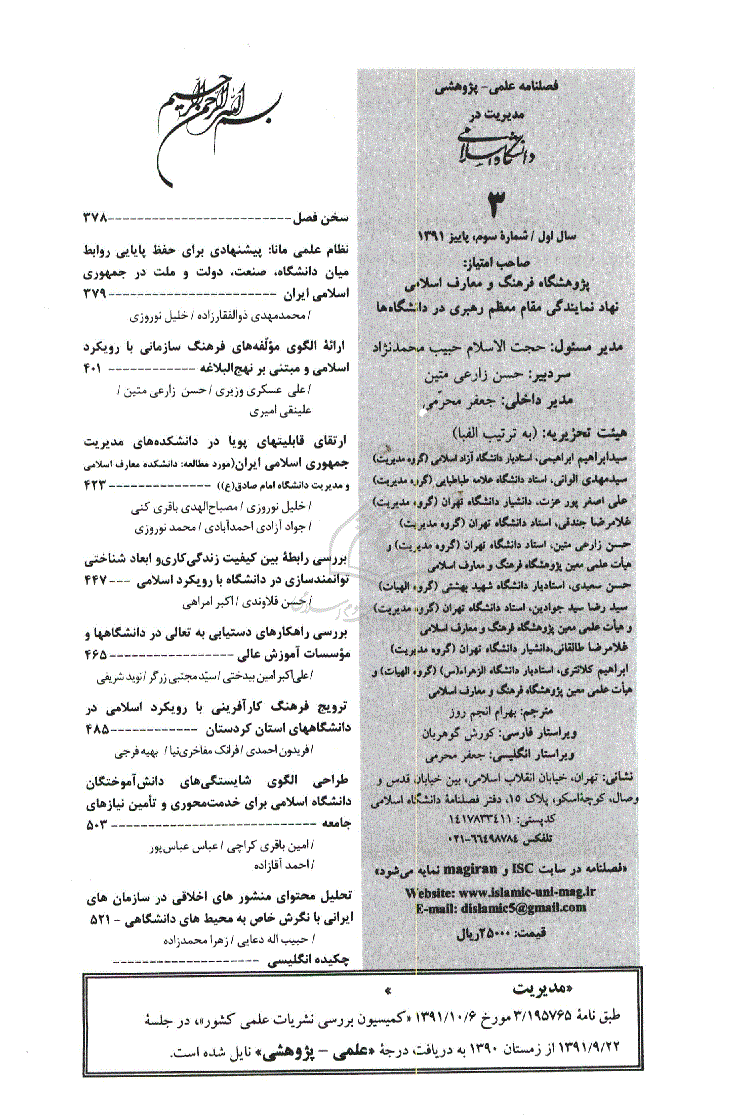 بسم الله الرحمن الرحیم
فصلنامه علمی - پژوهشی
مدیریت در
دانشگاه اسلامی
۳
سال اول / شمارهٔ سوم، پاییز ۱۳۹۱
صاحب امتیاز:
پژوهشگاه فرهنگ و معارف اسلامی
نهاد نمایندگی مقام معظم رهبری در دانشگاه‌ها
مدیر مسئول: حجت الاسلام حبیب محمدنژاد
سردبیر: حسن زارعی متین
مدیر داخلی: جعفر محرّمی
هیئت تحریریه: (به ترتیب الفبا)
سیدابراهیم ابراهیمی، استادیار دانشگاه آزاد اسلامی (گروه مدیریت)
سیدمهدی الوانی، استاد دانشگاه علامه طباطبایی (گروه مدیریت)
علی اصغر پور عزت، دانشیار دانشگاه تهران (گروه مدیریت)
غلامرضا جندقی، استاد دانشگاه تهران (گروه مدیریت)
حسن زارعی متین، استاد دانشگاه تهران (گروه مدیریت) و
هیأت علمی معین پژوهشگاه فرهنگ و معارف اسلامی
حسن سعیدی، استادیار دانشگاه شهید بهشتی (گروه الهیات)
سید رضا سید جوادین، استاد دانشگاه تهران (گروه مدیریت)
و هیأت علمی معین پژوهشگاه فرهنگ و معارف اسلامی
غلامرضا طالقانی،دانشیار دانشگاه تهران (گروه مدیریت)
ابراهیم کلانتری، استادیار دانشگاه الزهراء(س) (گروه الهیات) و
هیأت علمی معین پژوهشگاه فرهنگ و معارف اسلامی
مترجم: بهرام انجم روز
ویراستار فارسی: کورش گوهریان
ویراستار انگلیسی: جعفر محرمی
نشانی: تهران، خیابان انقلاب اسلامی، بین خیابان قدس و
وصال، کوچهٔ‌اسکو، پلاک ۱۵، دفتر فصلنامهٔ دانشگاه اسلامی
کدپستی: ۱۴۱۷۸۳۳۴۱۱
تلفکس ۶۶۴۹۸۷۸۴-۰۲۱
«فصلنامه در سایت ISC و magiran نمایه می‌شود»
Website: www.islamic-uni-mag.ir
E-mail: dislamic5@gmail.com
قیمت: ۲۵۰۰۰ریال
سخن فصل ------------------------- ۳۷۸
نظام علمی مانا: پیشنهادی برای حفظ پایایی روابط
میان دانشگاه، صنعت، دولت و ملت در جمهوری
اسلامی ایران ----------------------- ۳۷۹
/ محمدمهدی ذوالفقارزاده / خلیل نوروزی
ارائهٔ الگوی مؤلّفه‌های فرهنگ سازمانی با رویکرد
اسلامی و مبتنی بر نهج‌البلاغه ------------ ۴۰۱
/علی عسکری وزیری / حسن زارعی متین /
علینقی امیری
ارتقای قابلیتهای پویا در دانشکده‌های مدیریت
جمهوری اسلامی ایران(مورد مطالعه: دانشکده معارف اسلامی
و مدیریت دانشگاه امام صادق(ع)) -------------- ۴۲۳
/ خلیل نوروزی / مصباح‌الهدی باقری کنی
/ جواد آزادی احمدآبادی / محمد نوروزی
بررسی رابطهٔ بین کیفیت زندگی‌کاری‌و ابعاد شناختی
توانمندسازی در دانشگاه با رویکرد اسلامی --- ۴۴۷
/حسن قلاوندی / اکبر امراهی
بررسی راهکارهای دستیابی به تعالی در دانشگاهها و
مؤسسات آموزش عالی ----------------- ۴۶۵
/علی‌اکبر امین بیدختی / سیّد مجتبی زرگر / نوید شریفی
ترویج فرهنگ کارآفرینی با رویکرد اسلامی در
دانشگاههای استان کردستان ------------ ۴۸۵
/فریدون احمدی / فرانک مفاخری‌نیا / بهیه فرجی
طراحی الگوی شایستگی‌های دانش‌آموختگان
دانشگاه اسلامی برای خدمت‌محوری و تأمین نیازهای
جامعه ---------------------------- ۵۰۳
/ امین باقری کراچی / عباس عباس‌پور
/ احمد آقازاده
تحلیل محتوای منشور های اخلاقی در سازمان های
ایرانی با نگرش خاص به محیط های دانشگاهی - ۵۲۱
/ حبیب اله دعایی / زهرا محمدزاده
چکیده انگلیسی --------------------
«مدیریت »
طبق نامهٔ ۳/۱۹۵۷۶۵ مورخ ۱۳۹۱/۱۰/۶ «کمیسیون بررسی نشریات علمی کشور»، در جلسهٔ
۱۳۹۱/۹/۲۲ از زمستان ۱۳۹۰ به دریافت درجهٔ «علمی - پژوهشی» نایل شده است.